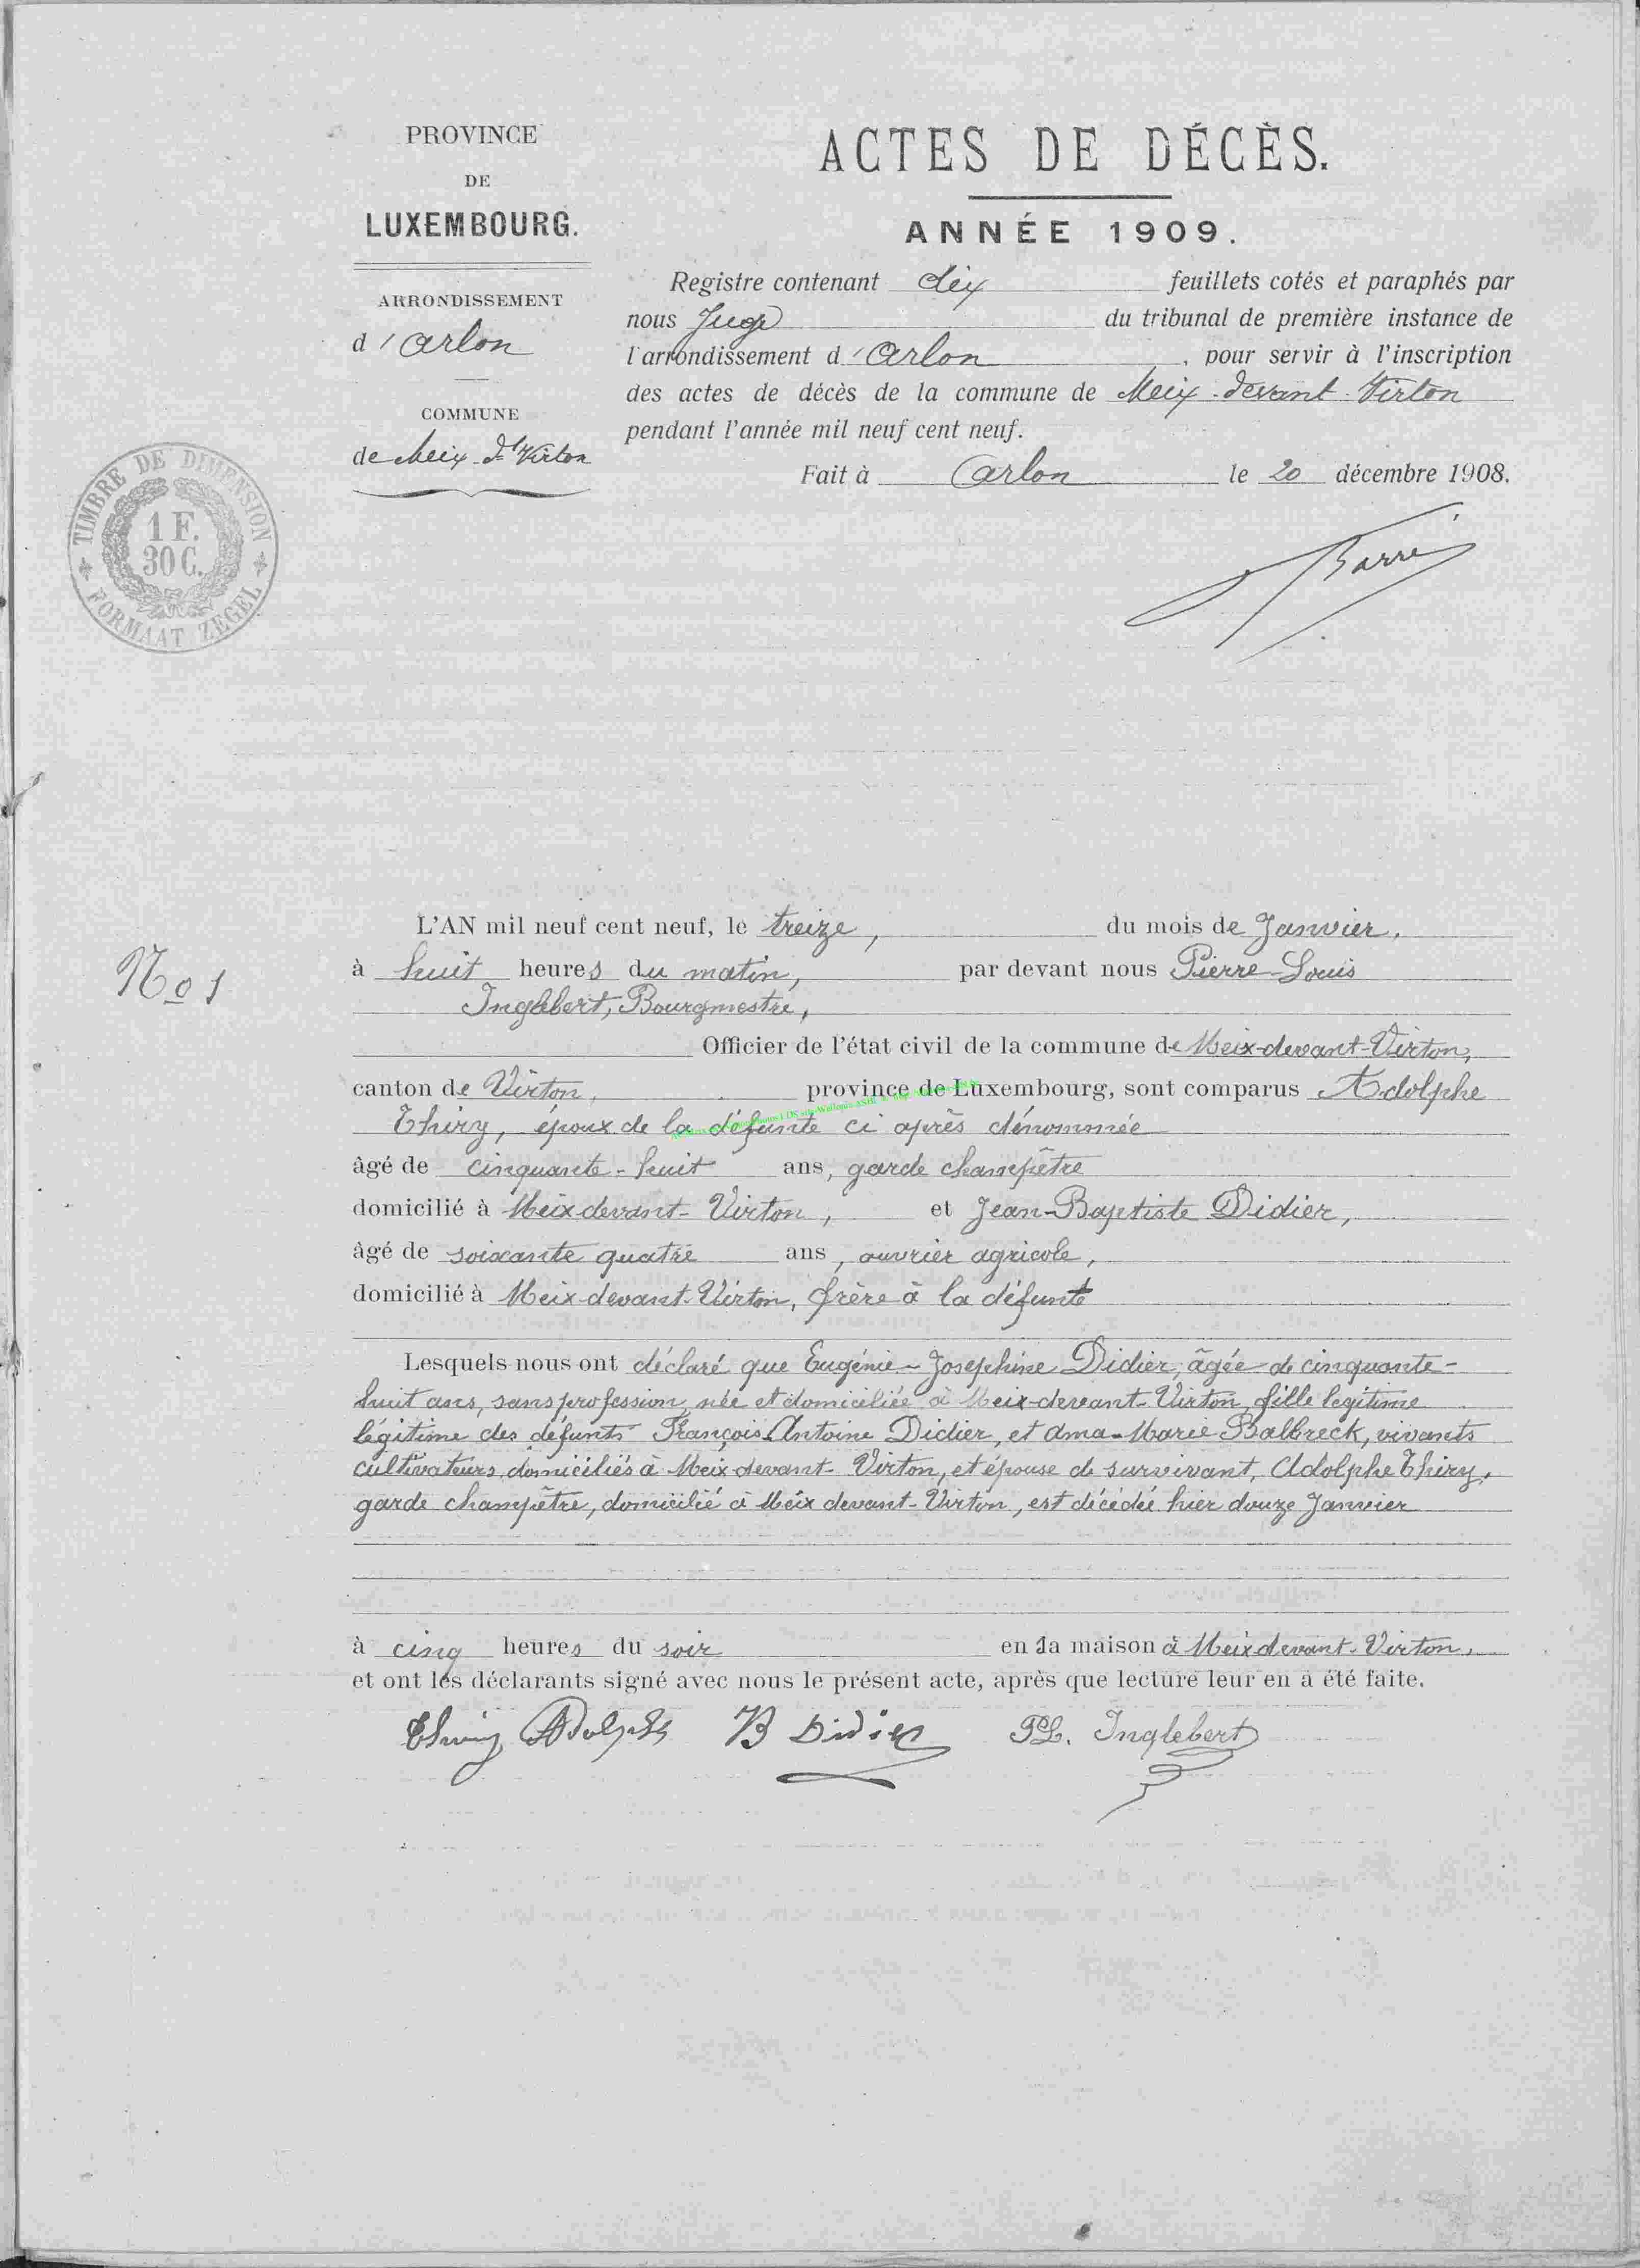 PROVINCE
DE
LUXEMBOURG.
ARRONDISSEMENT
d'Arlon
COMMUNE
de Meix-dt Virton
TIMBRE DE DIMENSION
1 F.
30 C.
FORMAAT ZEGEL
ACTES DE DÉCÈS.
ANNÉE 1909.
Registre contenant dix feuillets cotés et paraphés par
nous Juge du tribunal de première instance de
l'arrondissement d'Arlon, pour servir à l'inscription
des actes de décès de la commune de Meix-devant-Virton
pendant l'année mil neuf cent neuf.
Fait à Arlon le 20 décembre 1908.
No 1
L'AN mil neuf cent neuf, le treize, du mois de Janvier,
à huit heures du matin, par devant nous Pierre-Louis
Inglebert, Bourgmestre,
Officier de l'état civil de la commune de Meix-devant-Virton,
canton de Virton, province de Luxembourg, sont comparus Adolphe
Thiry, époux de la défunte ci après dénommée
âgé de cinquante-huit ans, garde champêtre
domicilié à Meix-devant-Virton, et Jean-Baptiste Didier,
âgé de soixante quatre ans, ouvrier agricole,
domicilié à Meix-devant-Virton, frère à la défunte
Lesquels nous ont déclaré que Eugénie-Joséphine Didier, âgée de cinquante-
huit ans, sans profession, née et domiciliée à Meix-devant-Virton, fille légitime
légitime des défunts François-Antoine Didier, et Anna-Marie Balbreck, vivants
cultivateurs, domiciliés à Meix devant-Virton, et épouse de survivant, Adolphe Thiry,
garde champêtre, domicilié à Meix devant-Virton, est décédée hier douze Janvier
à cinq heures du soir en la maison à Meix devant-Virton,
et ont les déclarants signé avec nous le présent acte, après que lecture leur en a été faite.
Thiry Adolphe JB Didier PL. Inglebert